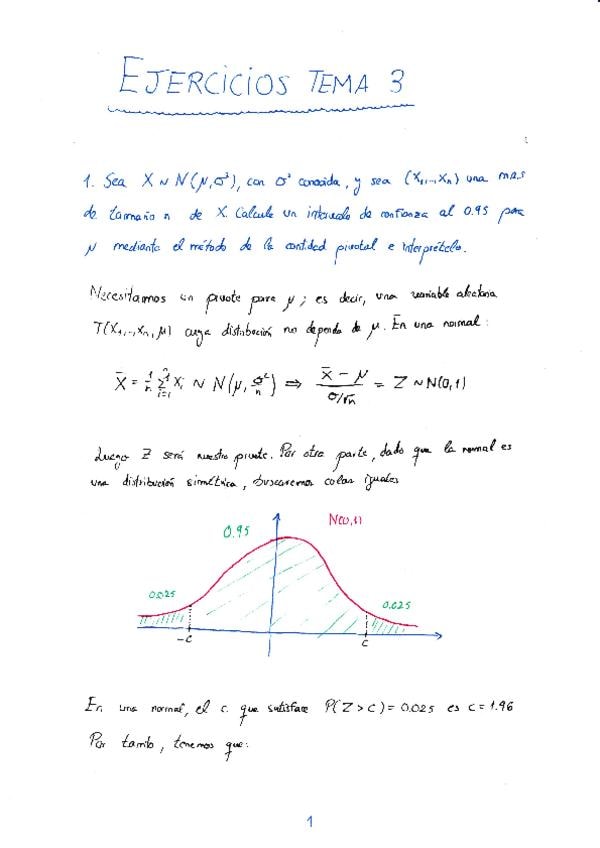 EJERCICIOS TEMA 3
1. Sea X ~ N(μ, σ²), con σ² conocida, y sea (X₁,..., Xₙ) una m.a.s
de tamaño n de X. Calcule un intervalo de confianza al 0.95 para
μ mediante el método de la cantidad pivotal e interprételo.
Necesitamos un pivote para μ; es decir, una variable aleatoria
T(X₁,..., Xₙ, μ) cuya distribución no dependa de μ. En una normal:
X̄ = 1/n ∑ᵢ₌₁ⁿ Xᵢ ~ N(μ, σ²/n) ⇒ (X̄ - μ)/(σ/√n) = Z ~ N(0,1)
Luego Z será nuestro pivote. Por otra parte, dado que la normal es
una distribución simétrica, buscaremos colas iguales
N(0,1)
0.95
0.025
0.025
-c
c
En una normal, el c que satisface P(Z > c) = 0.025 es c = 1.96
Por tanto, tenemos que:
1